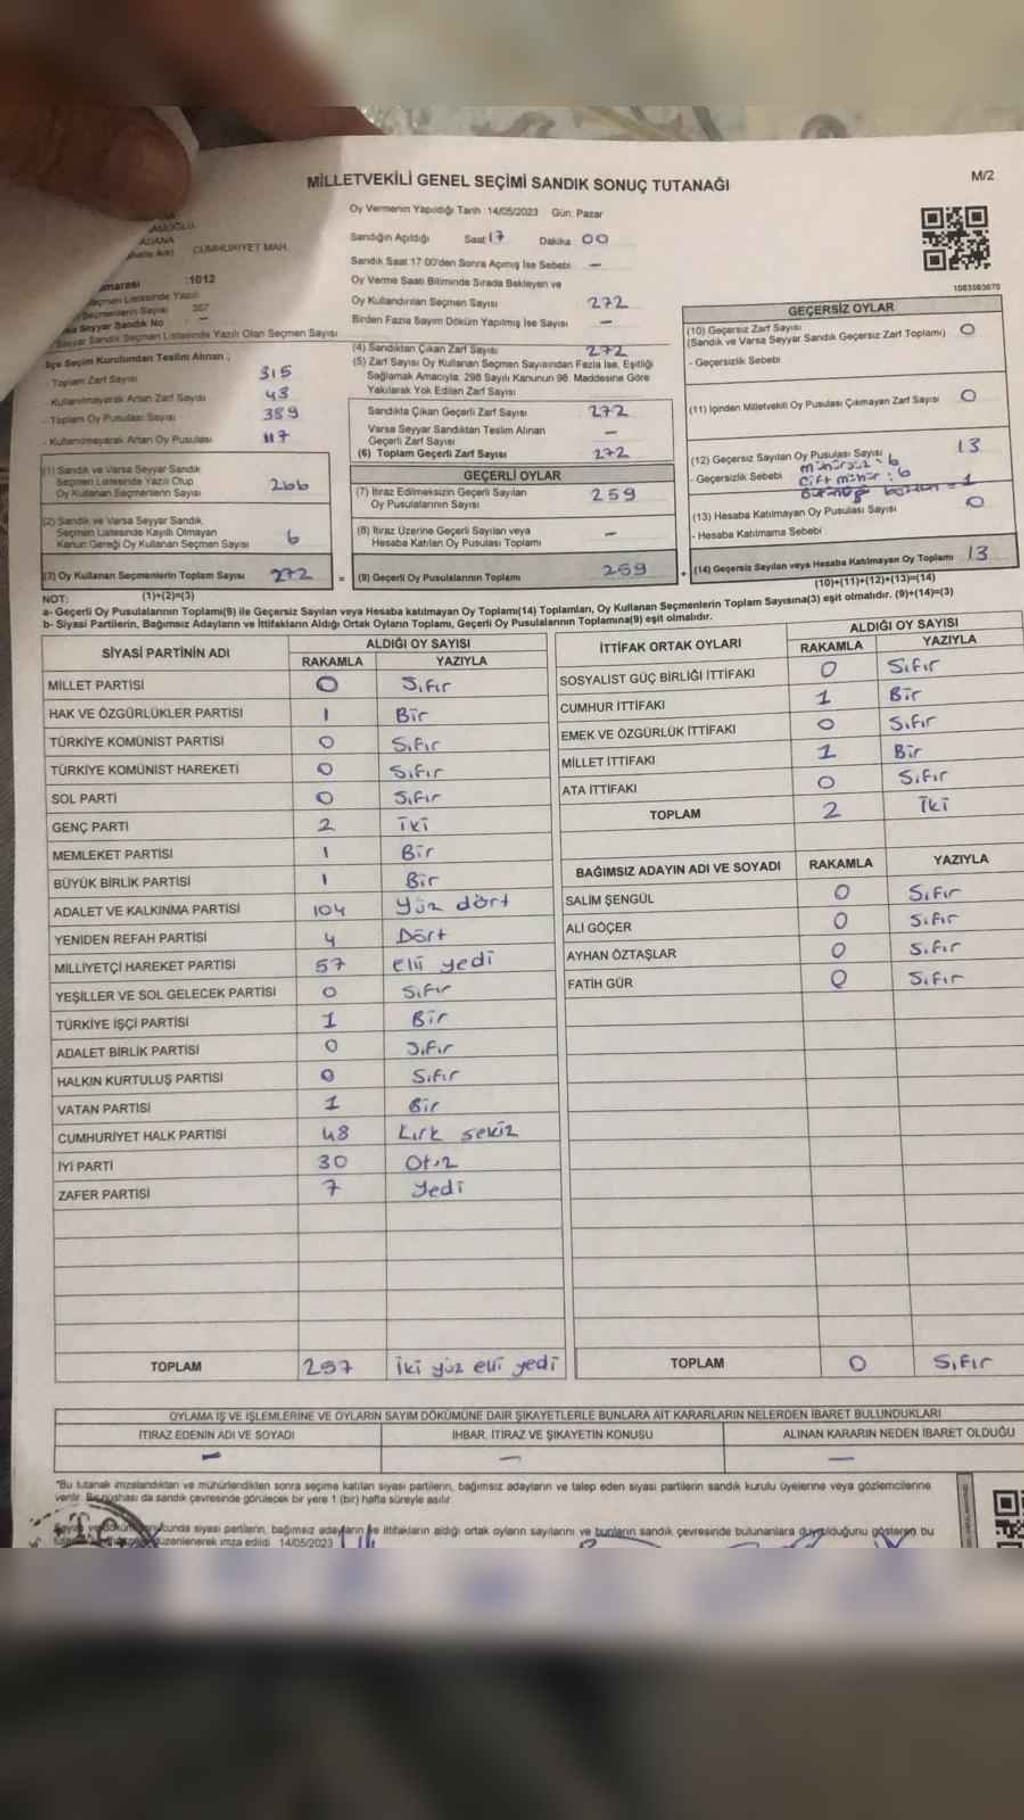 MİLLETVEKİLİ GENEL SEÇİMİ SANDIK SONUÇ TUTANAĞI
M/2
Oy Vermenin Yapıldığı Tarih : 14/05/2023 Gün: Pazar
ADANA
CUMHURİYET MAH.
Sandığın Açıldığı Saat 17 Dakika 00
Sandık Saat 17:00'den Sonra Açımış İse Sebebi —
:1012
Oy Verme Saati Bitiminde Sırada Bekleyen ve
Oy Kullandırılan Seçmen Sayısı 272
Birden Fazla Sayım Döküm Yapılmış İse Sayısı —
Seyyar Sandık No —
Seçmen Listesinde Yazılı Olan Seçmen Sayısı
İlçe Seçim Kurulundan Teslim Alınan ;
- Toplam Zarf Sayısı 315
- Kullanılmayarak Artan Zarf Sayısı 43
- Toplam Oy Pusulası Sayısı 389
- Kullanılmayarak Artan Oy Pusulası 117
(1) Sandık ve Varsa Seyyar Sandık
Seçmen Listesinde Yazılı Olup
Oy Kullanan Seçmenlerin Sayısı 266
(2) Sandık ve Varsa Seyyar Sandık
Seçmen Listesinde Kayıtlı Olmayan
Kanun Gereği Oy Kullanan Seçmen Sayısı 6
(3) Oy Kullanan Seçmenlerin Toplam Sayısı 272
(1)+(2)=(3)
(4) Sandıktan Çıkan Zarf Sayısı 272
(5) Zarf Sayısı Oy Kullanan Seçmen Sayısından Fazla İse, Eşitliği
Sağlamak Amacıyla; 298 Sayılı Kanunun 98. Maddesine Göre
Yakılarak Yok Edilen Zarf Sayısı
Sandıkta Çıkan Geçerli Zarf Sayısı 272
Varsa Seyyar Sandıktan Teslim Alınan
Geçerli Zarf Sayısı —
(6) Toplam Geçerli Zarf Sayısı 272
GEÇERLİ OYLAR
(7) İtiraz Edilmeksizin Geçerli Sayılan
Oy Pusulalarının Sayısı 259
(8) İtiraz Üzerine Geçerli Sayılan veya
Hesaba Katılan Oy Pusulası Toplamı —
= (9) Geçerli Oy Pusulalarının Toplamı 259
GEÇERSİZ OYLAR
(10) Geçersiz Zarf Sayısı
(Sandık ve Varsa Seyyar Sandık Geçersiz Zarf Toplamı) 0
- Geçersizlik Sebebi
(11) İçinden Milletvekili Oy Pusulası Çıkmayan Zarf Sayısı 0
(12) Geçersiz Sayılan Oy Pusulası Sayısı 13
- Geçersizlik Sebebi mühürsüz : 6
çift mühür : 6
= 1
(13) Hesaba Katılmayan Oy Pusulası Sayısı 0
- Hesaba Katılmama Sebebi
+ (14) Geçersiz Sayılan veya Hesaba Katılmayan Oy Toplamı 13
(10)+(11)+(12)+(13)=(14)
NOT:
a- Geçerli Oy Pusulalarının Toplamı(9) ile Geçersiz Sayılan veya Hesaba katılmayan Oy Toplamı(14) Toplamları, Oy Kullanan Seçmenlerin Toplam Sayısına(3) eşit olmalıdır. (9)+(14)=(3)
b- Siyasi Partilerin, Bağımsız Adayların ve İttifakların Aldığı Oyların Toplamı, Geçerli Oy Pusulalarının Toplamına(9) eşit olmalıdır.
SİYASİ PARTİNİN ADI ALDIĞI OY SAYISI
RAKAMLA YAZIYLA
MİLLET PARTİSİ 0 Sıfır
HAK VE ÖZGÜRLÜKLER PARTİSİ 1 Bir
TÜRKİYE KOMÜNİST PARTİSİ 0 Sıfır
TÜRKİYE KOMÜNİST HAREKETİ 0 Sıfır
SOL PARTİ 0 Sıfır
GENÇ PARTİ 2 İki
MEMLEKET PARTİSİ 1 Bir
BÜYÜK BİRLİK PARTİSİ 1 Bir
ADALET VE KALKINMA PARTİSİ 104 Yüz dört
YENİDEN REFAH PARTİSİ 4 Dört
MİLLİYETÇİ HAREKET PARTİSİ 57 elli yedi
YEŞİLLER VE SOL GELECEK PARTİSİ 0 Sıfır
TÜRKİYE İŞÇİ PARTİSİ 1 Bir
ADALET BİRLİK PARTİSİ 0 Sıfır
HALKIN KURTULUŞ PARTİSİ 0 Sıfır
VATAN PARTİSİ 1 Bir
CUMHURİYET HALK PARTİSİ 48 Kırk sekiz
İYİ PARTİ 30 Otuz
ZAFER PARTİSİ 7 Yedi
TOPLAM 257 İki yüz elli yedi
İTTİFAK ORTAK OYLARI ALDIĞI OY SAYISI
RAKAMLA YAZIYLA
SOSYALİST GÜÇ BİRLİĞİ İTTİFAKI 0 Sıfır
CUMHUR İTTİFAKI 1 Bir
EMEK VE ÖZGÜRLÜK İTTİFAKI 0 Sıfır
MİLLET İTTİFAKI 1 Bir
ATA İTTİFAKI 0 Sıfır
TOPLAM 2 İki
BAĞIMSIZ ADAYIN ADI VE SOYADI RAKAMLA YAZIYLA
SALİM ŞENGÜL 0 Sıfır
ALİ GÖÇER 0 Sıfır
AYHAN ÖZTAŞLAR 0 Sıfır
FATİH GÜR 0 Sıfır
TOPLAM 0 Sıfır
OYLAMA İŞ VE İŞLEMLERİNE VE OYLARIN SAYIM DÖKÜMÜNE DAİR ŞİKAYETLERLE BUNLARA AİT KARARLARIN NELERDEN İBARET BULUNDUKLARI
İTİRAZ EDENİN ADI VE SOYADI İHBAR, İTİRAZ VE ŞİKAYETİN KONUSU ALINAN KARARIN NEDEN İBARET OLDUĞU
— — —
"Bu tutanak imzalandıktan ve mühürlendikten sonra seçime katılan siyasi partilerin, bağımsız adayların ve talep eden siyasi partilerin sandık kurulu üyelerine veya gözlemcilerine
verilir. Bir nüshası da sandık çevresinde görülecek bir yere 1 (bir) hafta süreyle asılır.
siyasi partilerin, bağımsız adayların ve ittifakların aldığı ortak oyların sayılarını ve bunların sandık çevresinde bulunanlara duyulduğunu gösteren bu
düzenlenerek imza edildi. 14/05/2023